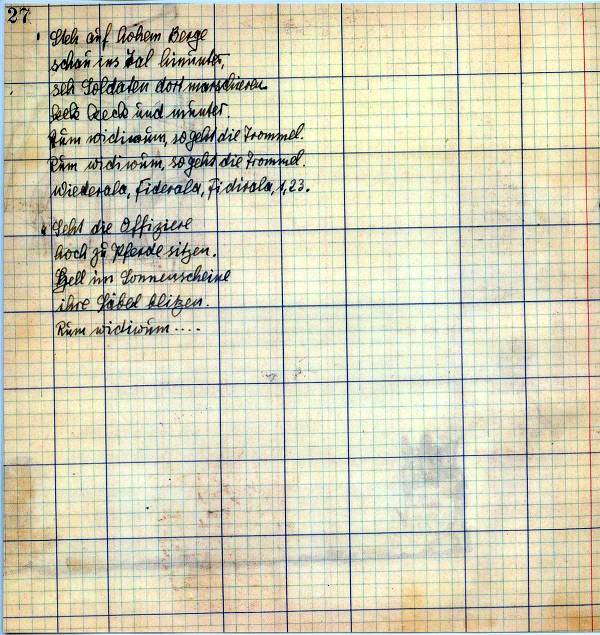 27
Steh auf hohem Berge
schau ins Tal hinunter,
seh Soldaten dort marschieren
keck und munter.
Rum widiwum, so geht die Trommel.
Rum widiwum, so geht die Trommel.
Wiederala, Fiderala, Fidirala, 1, 2 3.
Seht die Offiziere
hoch zu Pferde sitzen.
Hell im Sonnenscheine
ihre Säbel blitzen.
Rum widiwum....